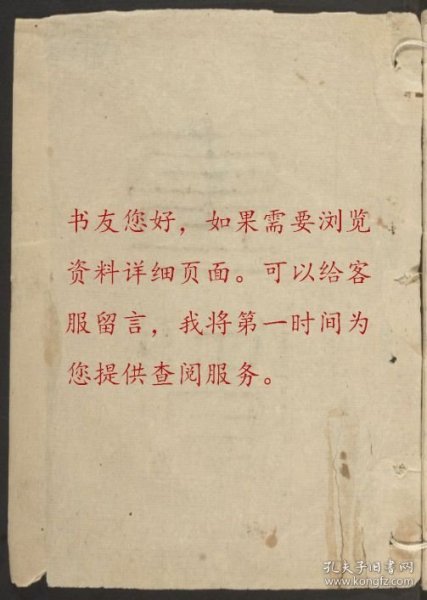 书友您好，如果需要浏览
资料详细页面。可以给客
服留言，我将第一时间为
您提供查阅服务。
孔夫子旧书网
www.kongfz.com